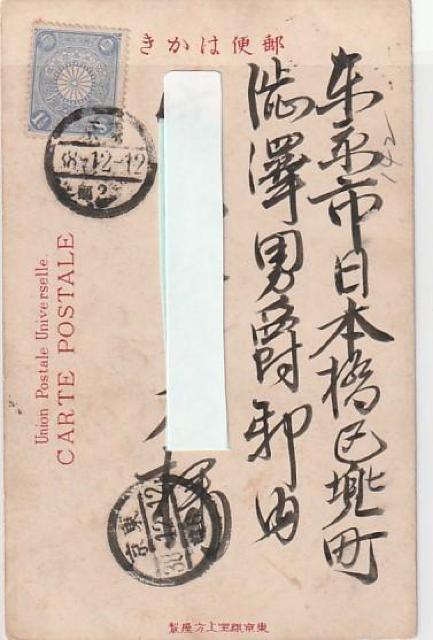 郵便はかき
東京市日本橋区兜町
澁澤男爵邸内
様
Union Postale Universelle.
CARTE POSTALE
38-12-12
東京
東京銀座上方屋製